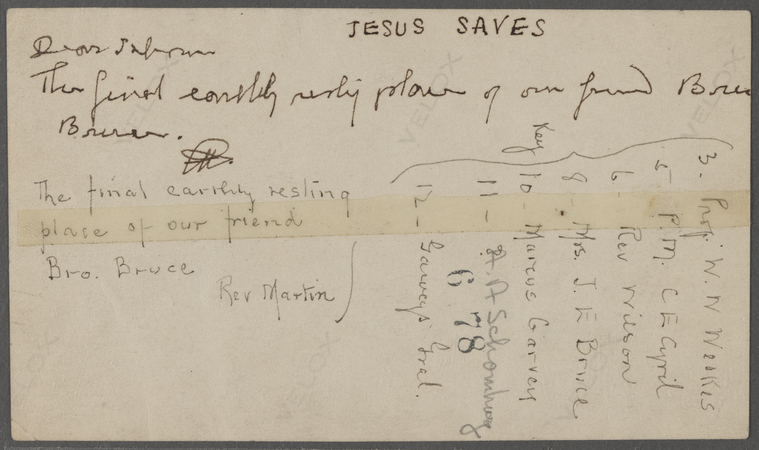 JESUS SAVES
Dear
The final earthly resting place of our friend
The final earthly resting
place of our friend
Bro. Bruce
Rev Martin
Key
3. Prof. W. N Weekes
5 P. M. C E Cyril
6 Rev Wilson
8. Mrs. J. E Bruce
10 - Marcus Garvey
11 - A. A Schomburg
12 - Garvey's
6 78
VELOX
VELOX
VELOX
VELOX